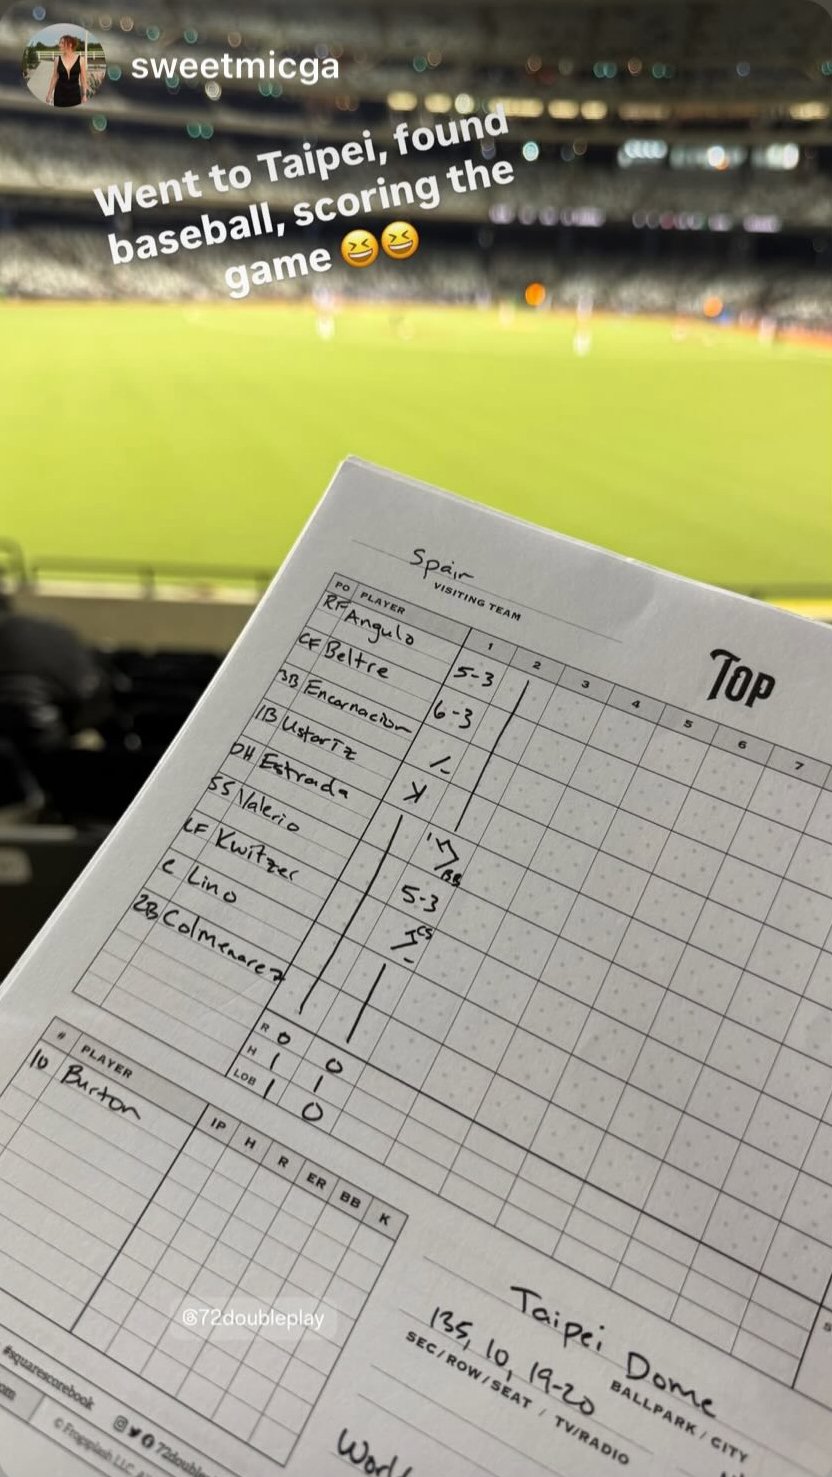 sweetmicga
Went to Taipei, found
baseball, scoring the
game 😆😆
Spain
VISITING TEAM
TOP
PO PLAYER 1 2 3 4 5 6 7
RF Angulo 5-3
CF Beltre 6-3
3B Encarnacion
1B Ustariz K
DH Estrada
SS Valerio BB
LF Kwitzer 5-3
C Lino CS
2B Colmenarez
R 0 0
H 1 1
LOB 1 0
# PLAYER IP H R ER BB K
10 Burton
@72doubleplay
Taipei Dome
BALLPARK / CITY
135, 10, 19-20
SEC/ROW/SEAT / TV/RADIO
#squarescorebook
© Frogsplash LLC